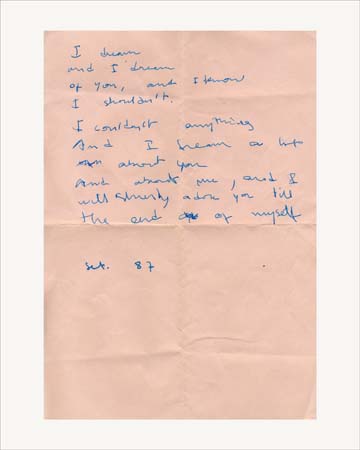 I dream
and I dream
of you, and I know
I shouldn't.
I couldn't anything
And I dream a lot
about you
And about me, and I
will silently adore you till
the end of myself
set. 87